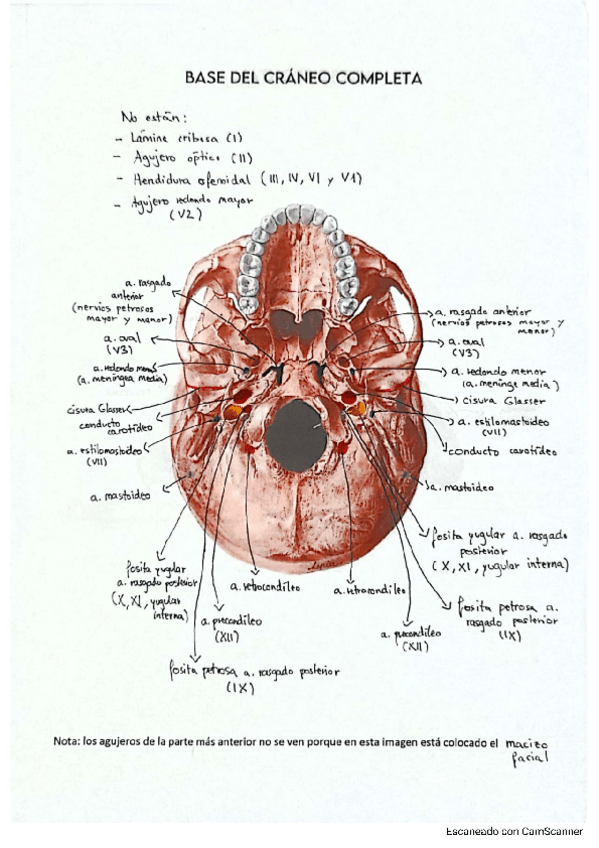 BASE DEL CRÁNEO COMPLETA
No están:
- Lámina cribosa (I)
- Agujero óptico (II)
- Hendidura esfenoidal (III, IV, VI y V1)
- Agujero redondo mayor
(V2)
a. rasgado
anterior
(nervios petrosos
mayor y menor)
a. oval
(V3)
a. redondo menor
(a. meníngea media)
cisura Glasser
conducto
carotídeo
a. estilomastoideo
(VII)
a. mastoideo
fosita yugular
a. rasgado posterior
(X, XI, yugular
interna)
a. retrocondíleo
a. precondíleo
(XII)
fosita petrosa a. rasgado posterior
(IX)
a. rasgado anterior
(nervios petrosos mayor y
menor)
a. oval
(V3)
a. redondo menor
(a. meninge media)
cisura Glasser
a. estilomastoideo
(VII)
conducto carotídeo
a. mastoideo
fosita yugular a. rasgado
posterior
(X, XI, yugular interna)
fosita petrosa a.
rasgado posterior
(IX)
a. retrocondíleo
a. precondíleo
(XII)
Nota: los agujeros de la parte más anterior no se ven porque en esta imagen está colocado el macizo
facial
Escaneado con CamScanner